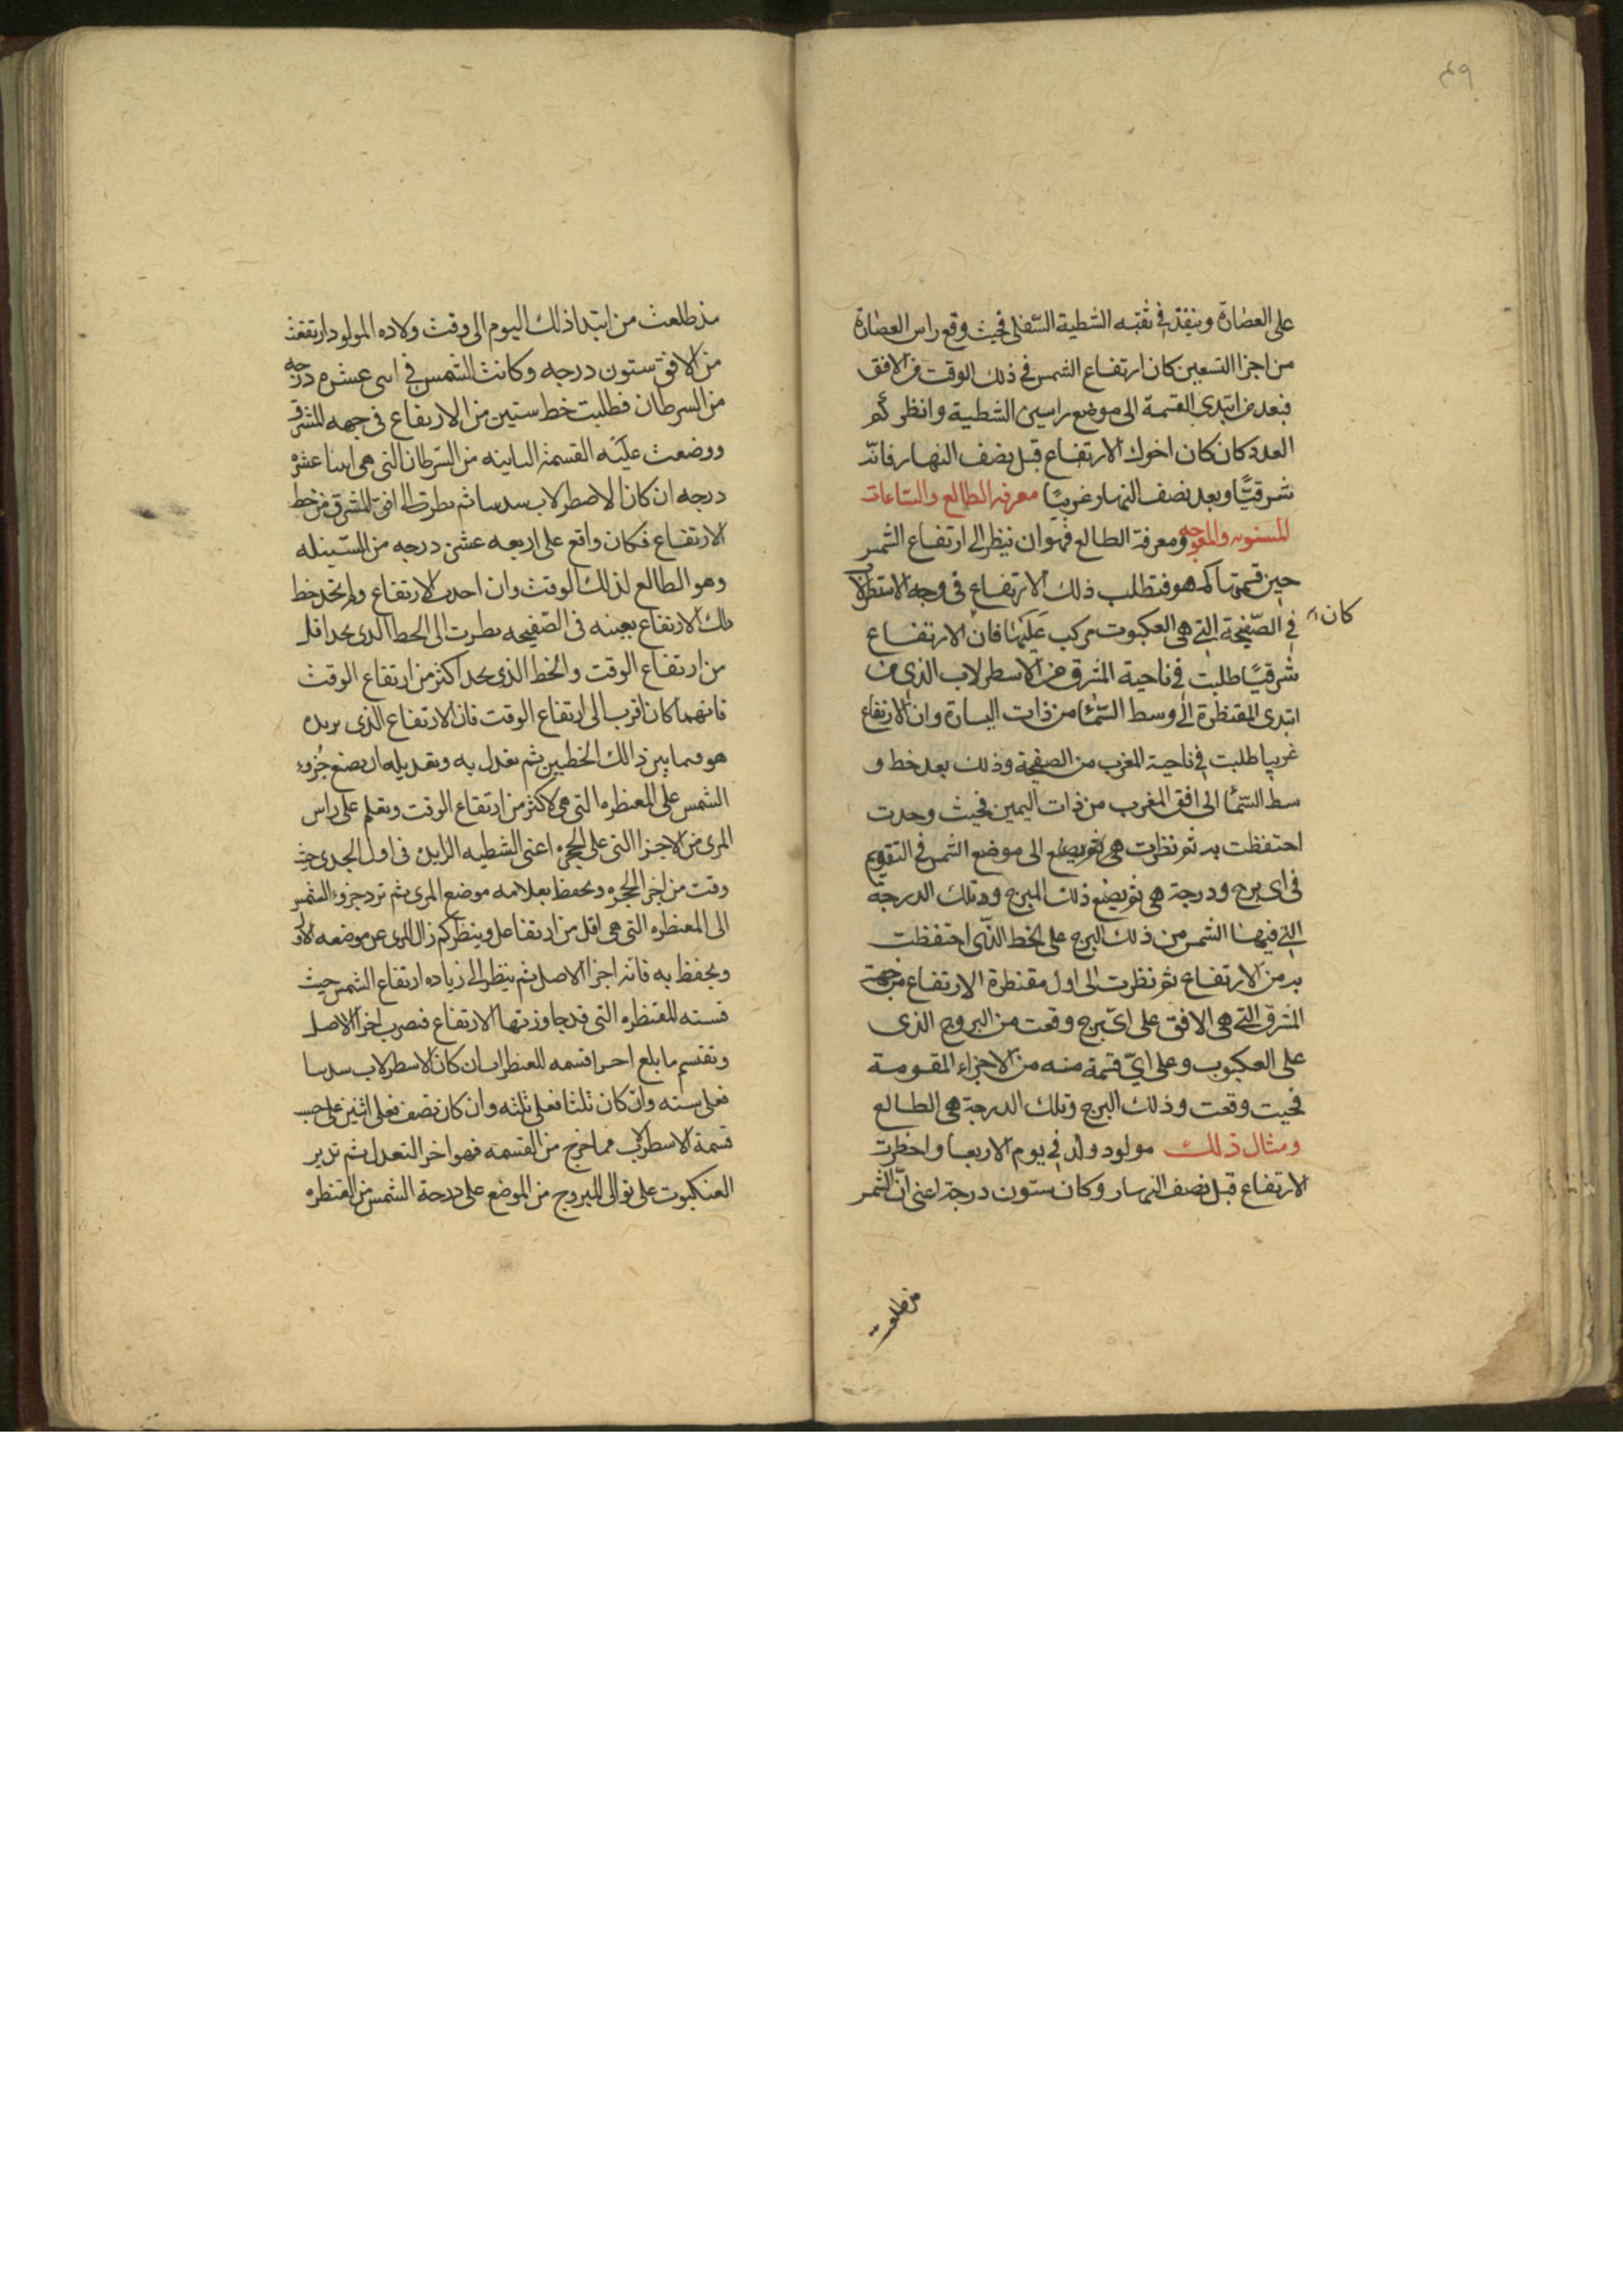 ٤٩
على العضادة وينفذ في ثقبه الشطية السفلى فحيث وقع راس العضادة
من اجزا التسعين كان ارتفاع الشمس في ذلك الوقت من الافق
فبعد من ابتدى القسمة الى موضع راسين الشطية وانظر كم
العدد كان كان اخوك الارتفاع قبل نصف النهار فانه
شرقيًا وبعد نصف النهار غربيًا معرفه الطالع والساعات
المستويه والمعوجه ومعرفة الطالع فهو ان تنظر الى ارتفاع الشمس
حين قستها كم هو فتطلب ذلك الارتفاع في وجه الاسطرلاب
في الصفيحة التي هي العكبوت مركب عليها فان الارتفاع
كان
شرقيًا طلبت في ناحية المشرق من الاسطرلاب الذي من
ابتدى المقنطرة الى وسط السما من ذات اليسارة وان الارتفاع
غربيا طلبت في ناحية المغرب من الصفيحة وذلك بعد خط و
سط السما الى افق المغرب من ذات اليمين فحيث وجدت
احتفظت به ثم نظرت هي ثم يضع الى موضع الشمس في التقويم
في اى برج ودرجة هي ثم يضع ذلك البرج وتلك الدرجة
التي فيها الشمس من ذلك البرج على الخط الذى احتفظت
به من الارتفاع ثم نظرت الى اول مقنطرة الارتفاع من جهة
المشرق التي هي الافق على اىّ برج وقعت من البروج الذى
على العكبوب وعلى ايّ قسمة منه من الاجزاء المقومة
فحيت وقعت وذلك البرج وتلك الدرجة هي الطالع
ومثال ذلك مولود ولد في يوم الاربعا واخطرت
الارتفاع قبل نصف النهار وكان ستون درجة اعنى انّ الشمس
مذ طلعت
مذ طلعت من ابتدا ذلك اليوم الى وقت ولاده المولود ارتفعت
من الافق ستون درجه وكانت الشمس في اسى عشره درجه
من السرطان فطلبت خط ستين من الارتفاع في جهه المشرق
ووضعت عليه القسمة الباينه من السرطان التي هي اثنا عشره
درجه ان كان الاصطرلاب سدسا ثم نطرت الى افق المشرق من خط
الارتفاع فكان واقع على اربعه عشر درجه من السنبله
وهو الطالع لذلك الوقت وان احدت الارتفاع ولم تجد خط
ذلك الارتفاع بعينه في الصفيحه نطرت الى الخط الدى تجد اقل
من ارتفاع الوقت والخط الذي تجد اكثر من ارتفاع الوقت
فانهما كان اقرب الى ارتفاع الوقت فان الارتفاع الذى يريده
هو فما بين ذالك الخطين ثم تعدل به وتعديله ان يضع جزوء
الشمس على المعنطره التي هي اكثر من ارتفاع الوقت وتعلم على راس
المرى من الاجزا التي على الحجره اعنى الشطيه الزايده في اول الجدى حيث
وقت من اجزا الحجره وتحفظ بعلامه موضع المرى ثم ترد جزوء الشمس
الى المعنطره التي هي اقل من ارتفاعل وينظر كم زال المرى عن موضعه الاول
ويحفظ به فانه اجزا الاصل ثم ينظر الى زياده ارتفاع الشمس حيث
قسته للمقنطره التي قد جاوزتها الارتفاع فنصرب اجزا الاصل
وتقتسم ما بلغ احرا قسمه المعنطرات ان كان الاسطرلاب سدسا
فعلى سته وان كان ثلثا فعلى ثلثه وان كان نصف فعلى اثنين على حسب
قسمة الاسطرلاب فما خرج من القسمة فهو اخر التعدل ثم تدير
العنكبوت على توالى البروج من الموضع على درجة الشمس من المقنطره